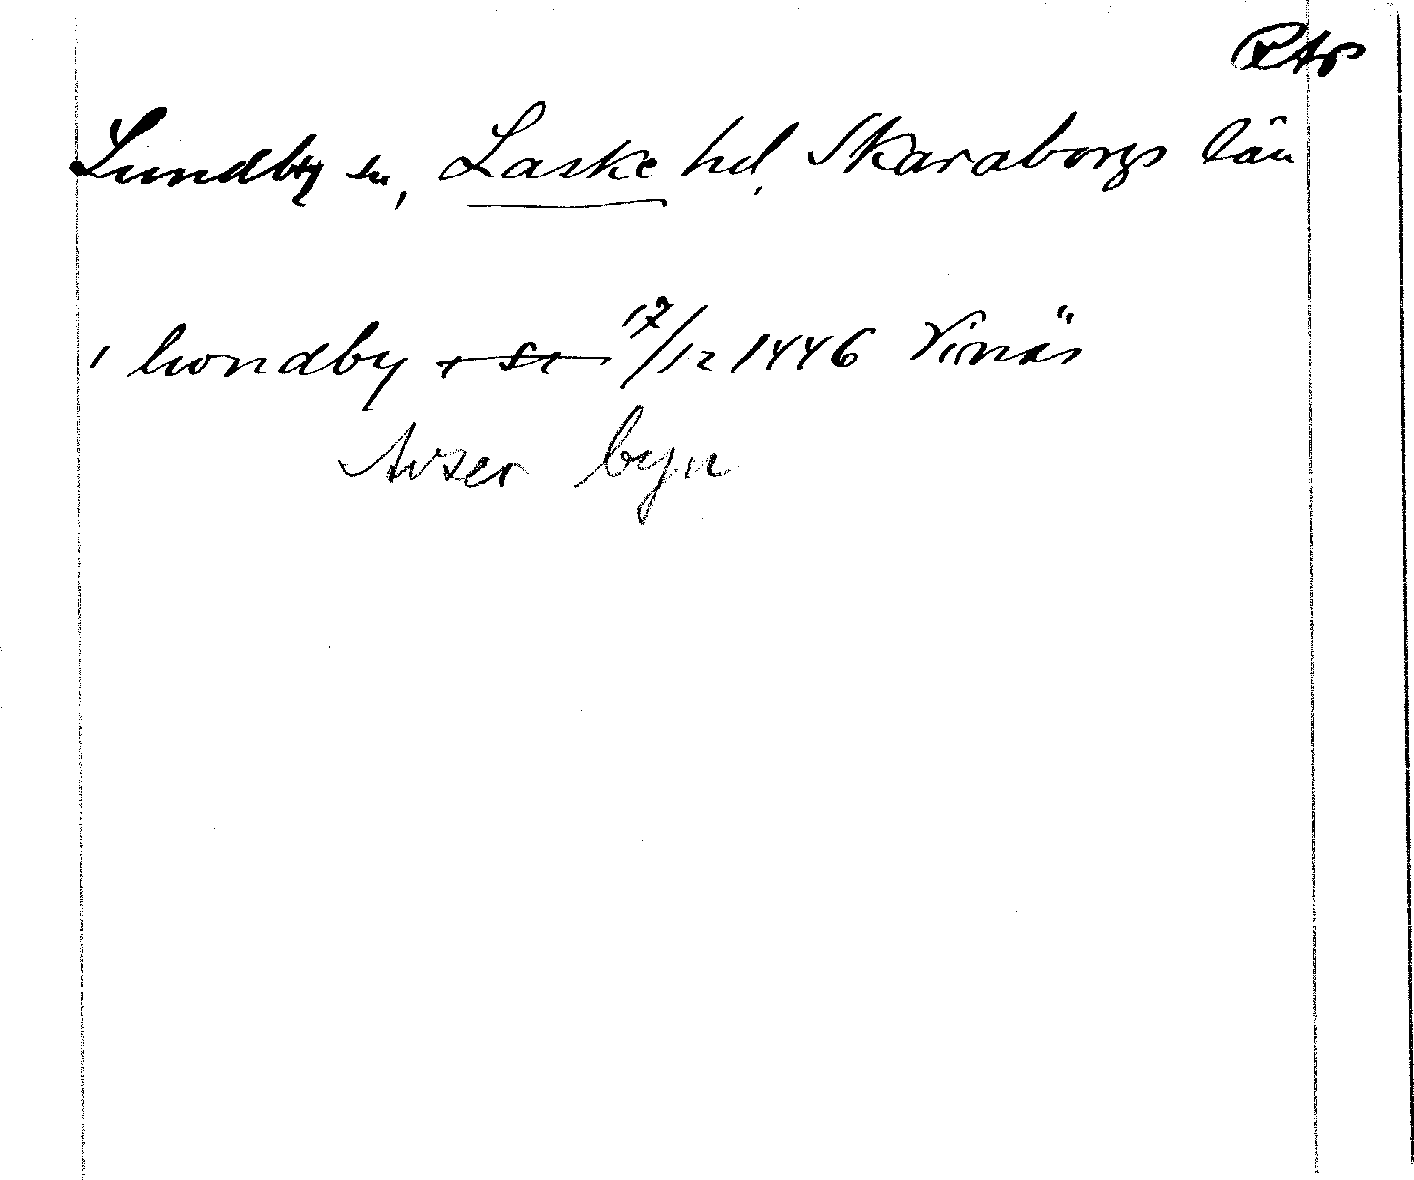 Rtp
Lundby sn, Laske hd, Skaraborgs län
i lwndby 17/12 1446 Vinäs
Avser byn